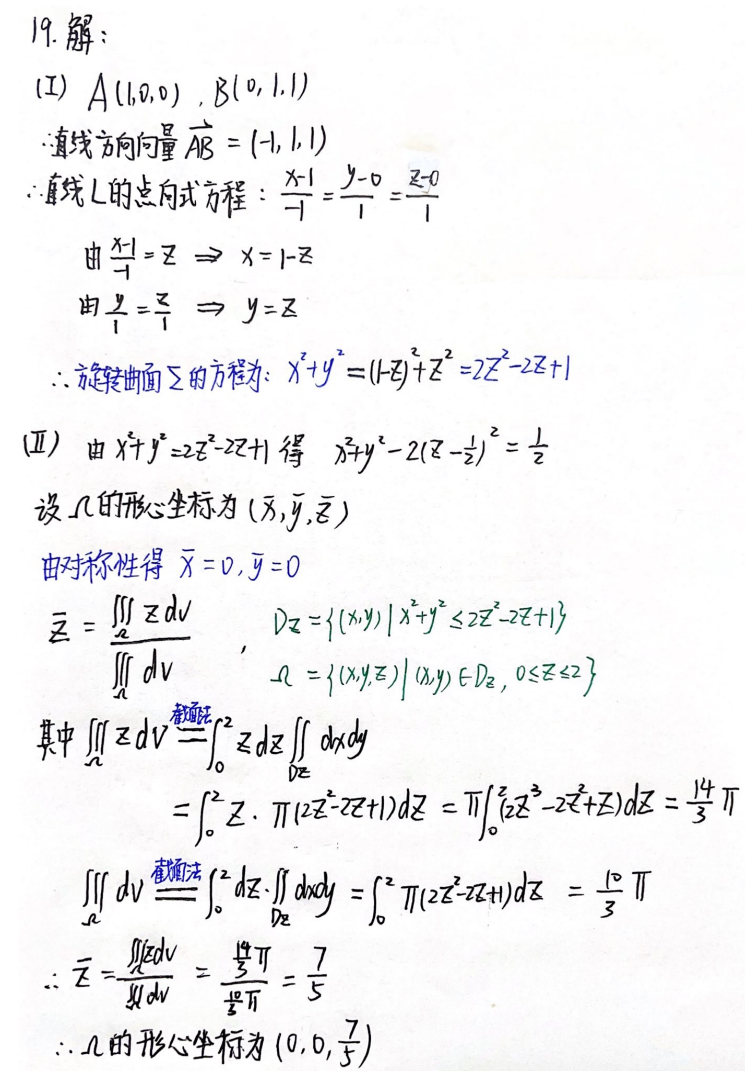 19. 解：
(I) A(1,0,0), B(0,1,1)
∴直线方向向量 \overrightarrow{AB} = (-1,1,1)
∴直线L的点向式方程：\frac{x-1}{-1} = \frac{y-0}{1} = \frac{z-0}{1}
由 \frac{x-1}{-1} = z ⇒ x = 1-z
由 \frac{y}{1} = \frac{z}{1} ⇒ y = z
∴旋转曲面Σ的方程为：x²+y² = (1-z)²+z² = 2z²-2z+1
(II) 由 x²+y² = 2z²-2z+1 得 x²+y²-2(z-\frac{1}{2})² = \frac{1}{2}
设Ω的形心坐标为(\bar{x}, \bar{y}, \bar{z})
由对称性得 \bar{x}=0, \bar{y}=0
\bar{z} = \frac{∭_Ω z dv}{∭_Ω dv}, Dz = {(x,y) | x²+y² ≤ 2z²-2z+1}
Ω = {(x,y,z) | (x,y)∈Dz, 0≤z≤2}
其中 ∭_Ω z dv \overset{截面法}{=} ∫_0^2 z dz ∬_{Dz} dxdy
= ∫_0^2 z · π(2z²-2z+1)dz = π∫_0^2 (2z³-2z²+z)dz = \frac{14}{3}π
∭_Ω dv \overset{截面法}{=} ∫_0^2 dz · ∬_{Dz} dxdy = ∫_0^2 π(2z²-2z+1)dz = \frac{10}{3}π
∴ \bar{z} = \frac{∭_Ω z dv}{∭_Ω dv} = \frac{\frac{14}{3}π}{\frac{10}{3}π} = \frac{7}{5}
∴Ω的形心坐标为(0,0,\frac{7}{5})